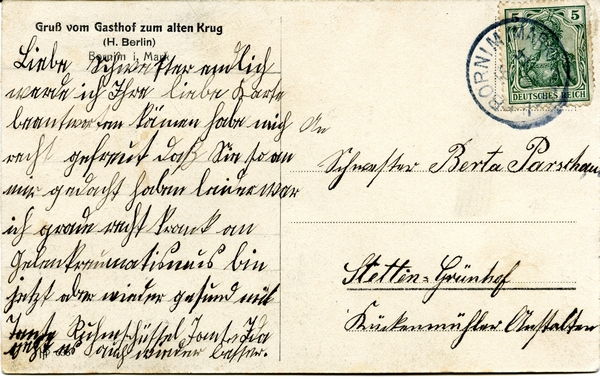 Gruß vom Gasthof zum alten Krug
(H. Berlin)
Bornim i. Mark
Liebe Schwester endlich
werde ich Ihre liebe Karte
beantworten können habe mich
recht gefreut daß Sie so an
mir gedacht haben leider war
ich grade recht krank an
Gelenkreumatismus bin
jetzt aber wieder gesund mit
Tante Tante Ida
geht es auch wieder besser.
BORNIM (MARK)
5 5
DEUTSCHES REICH
An
Schwester Berta Parschau
Stettin-Grünhof
Kückenmühler Anstalten